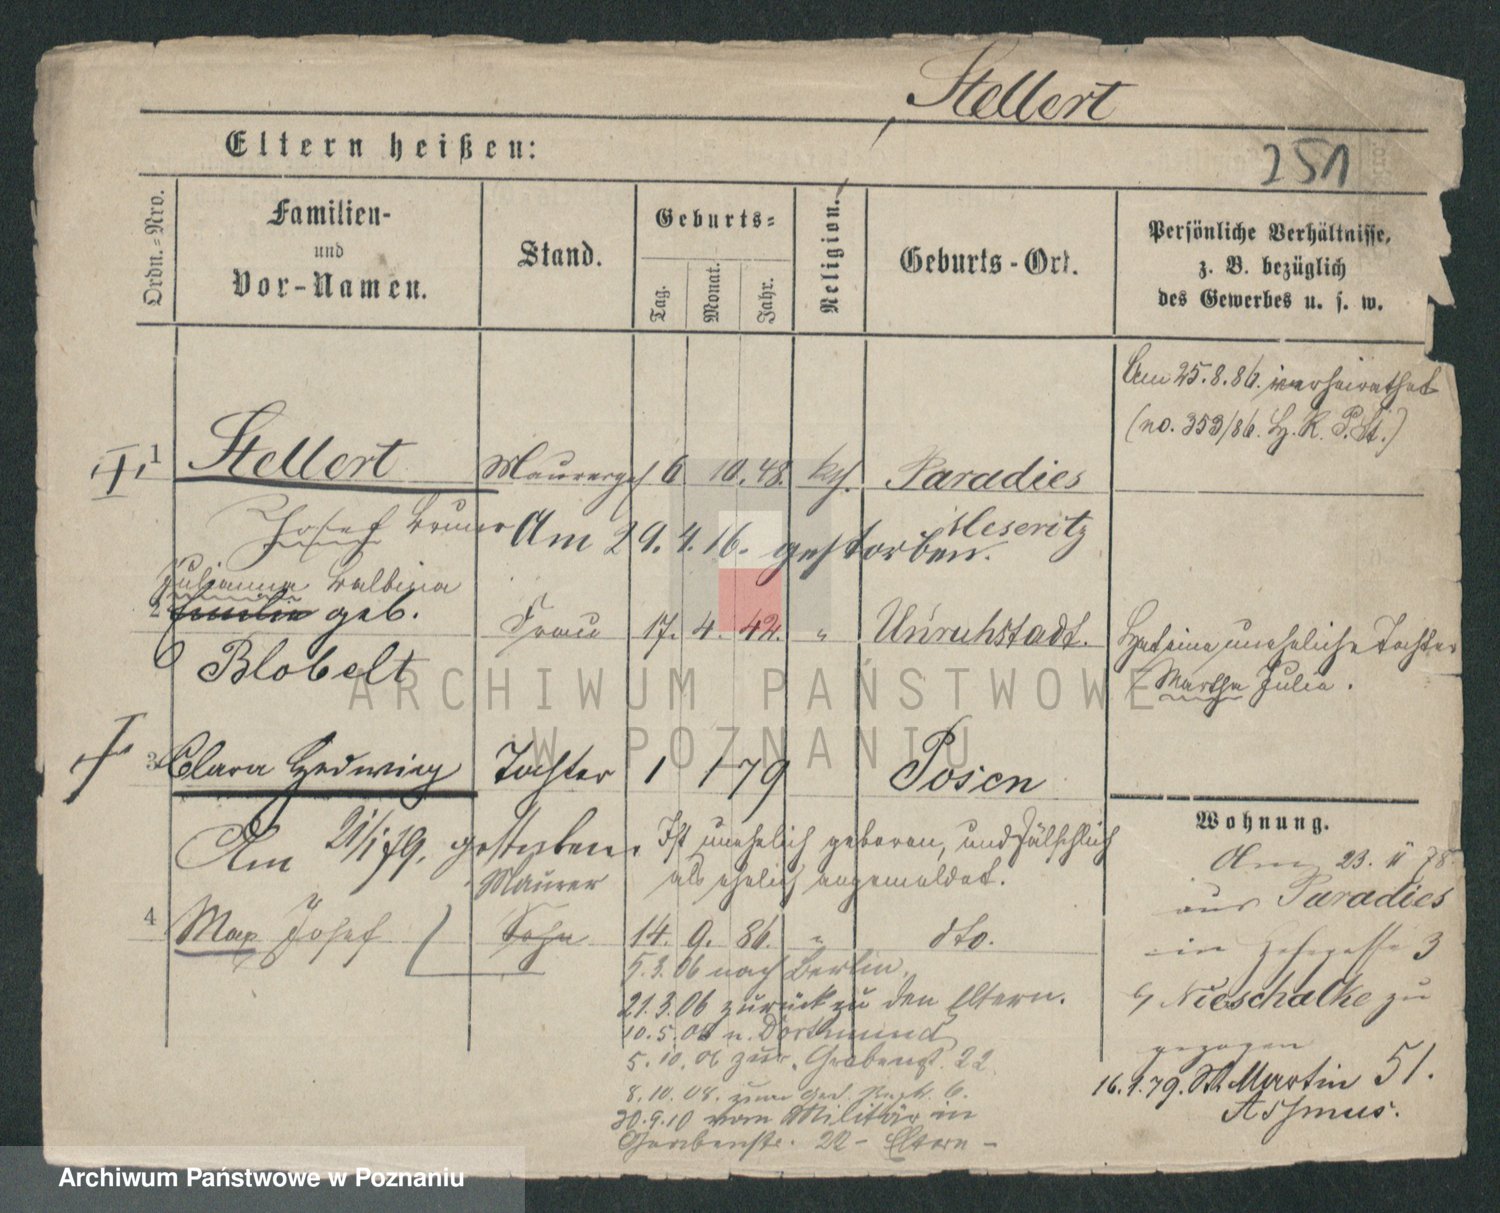 Stellert
Eltern heißen:
251
Ordn.-Nro.
Familien-
und
Vor-Namen.
Stand.
Geburts-
Tag.
Monat.
Jahr.
Religion.
Geburts-Ort.
Persönliche Verhältnisse,
z. B. bezüglich
des Gewerbes u. s. w.
Am 25.8.86. verheirathet
(no. 353/86. P. St.)
1 Stellert Maurerges 6 10. 48. kth. Paradies
Josef Bruno Meseritz
Am 29.4.16. gestorben.
Julianna Balbina
2 Emilie geb. Frau 17. 4. 42. " Unruhstadt.
Blobelt
Hat eine uneheliche Tochter
Martha Julia.
3 Clara Hedwig Tochter 1 1 79 Posen
Am 21/1 79. gestorben.
Ist unehelich geboren, und fälschlich
als ehelich angemeldet.
Maurer
4 Max Josef Sohn 14. 9. 86. " dto.
5.3.06 nach Berlin.
21.3.06 zurück zu den Eltern.
10.5.06 n. Dortmund
5.10.06 zur. Grabenst. 22
8.10.08. zum 6.
30.9.10 vom Militär in
Grabenstr. 22 - Eltern -
Wohnung.
Am 23. 11 78
aus Paradies
in 3
b/ Nieschalke zu
gezogen
16.1.79. St. Martin 51.
Assmus.
ARCHIWUM PAŃSTWOWE
W POZNANIU
Archiwum Państwowe w Poznaniu